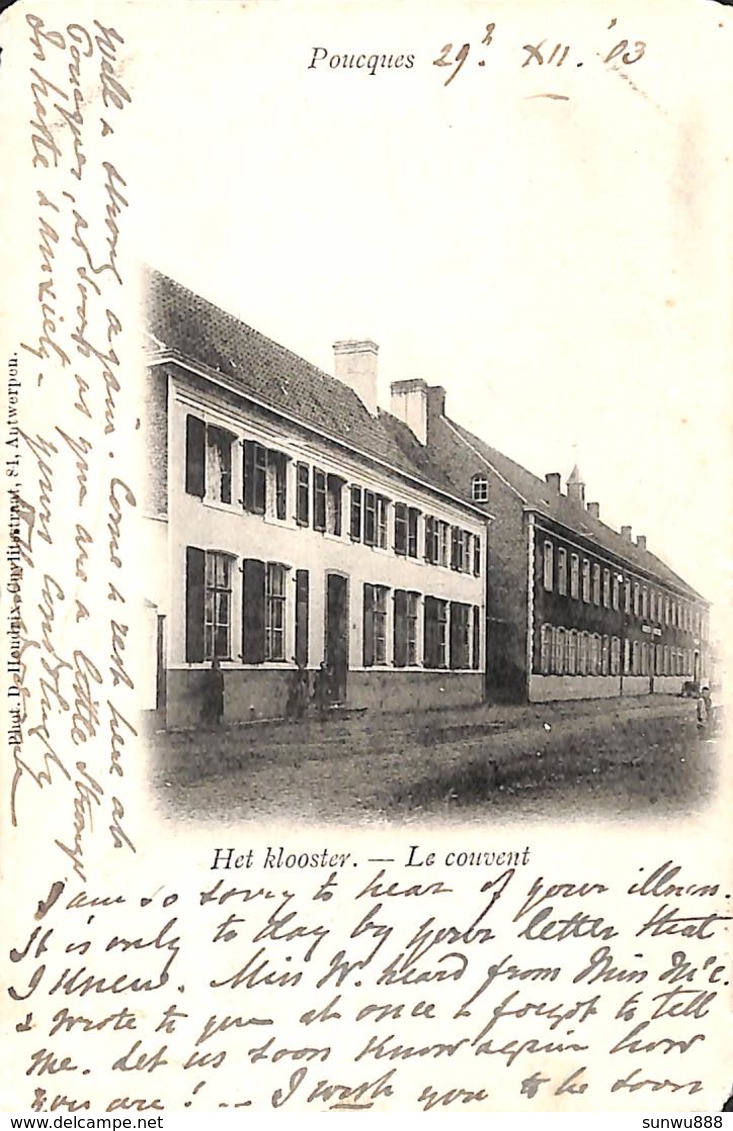 Poucques 29. XII. '03
Het klooster. — Le couvent
I am so sorry to hear of your illness.
It is only to day by your letter that
I knew. Miss W. heard from Miss McC.
& wrote to you at once & forgot to tell
me. Let us soon know again how
you are! I wish you to be soon
Well & strong again. Come & rest here at
Poucques, as soon as you are a little strong
In haste & anxiety - yours
Phot. D. Hendrix, 81, Antwerpen.
sunwu888